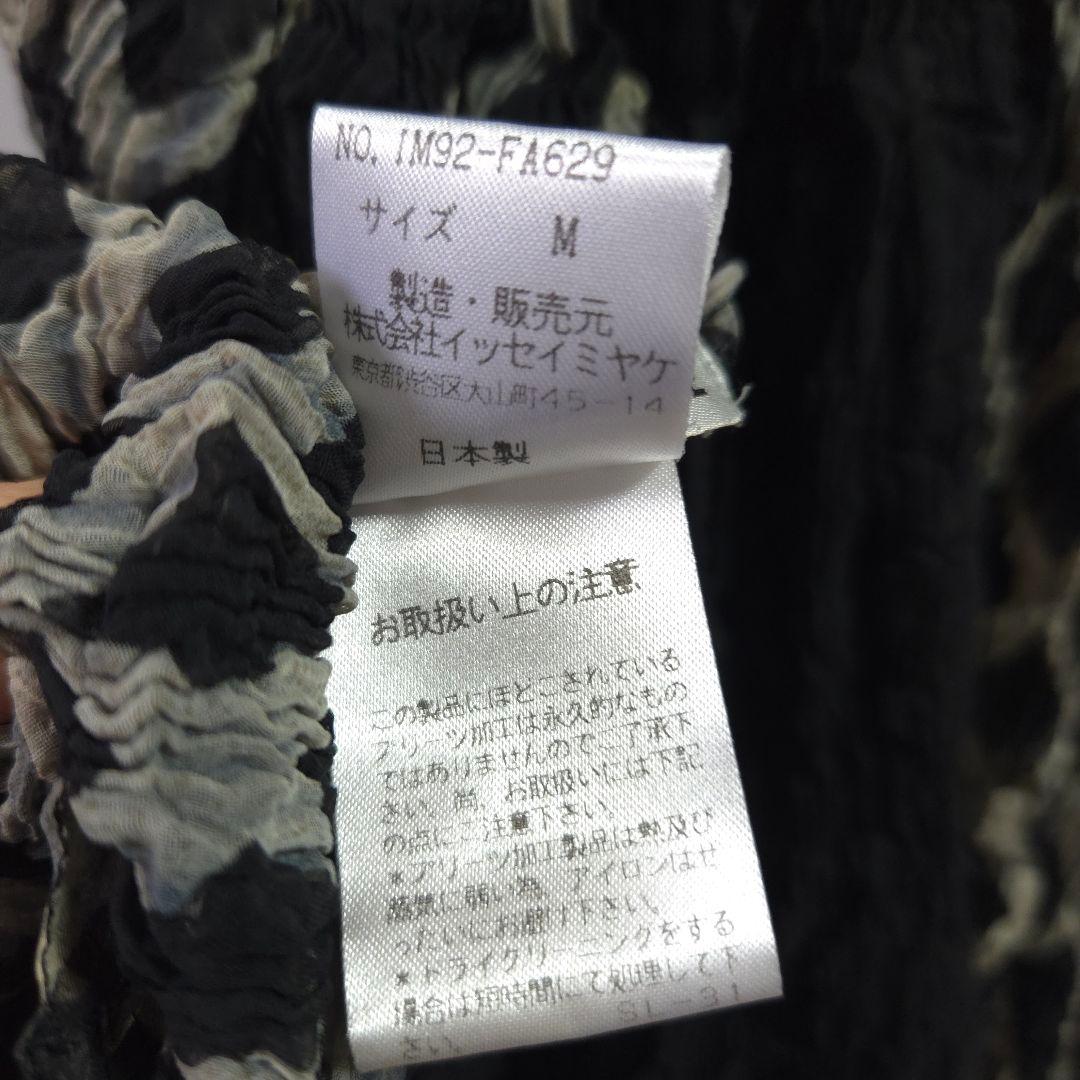 NO. IM92-FA629
サイズ M
製造・販売元
株式会社イッセイミヤケ
東京都渋谷区大山町45-14
日本製
お取扱い上の注意
この製品にほどこされている
プリーツ加工は永久的なもの
ではありませんのでご了承下
さい。尚、お取扱いには下記
の点にご注意下さい。
*プリーツ加工製品は熱及び
蒸気に弱い為、アイロンはぜ
ったいにお避け下さい。
*ドライクリーニングをする
場合は短時間にて処理して下
さい。